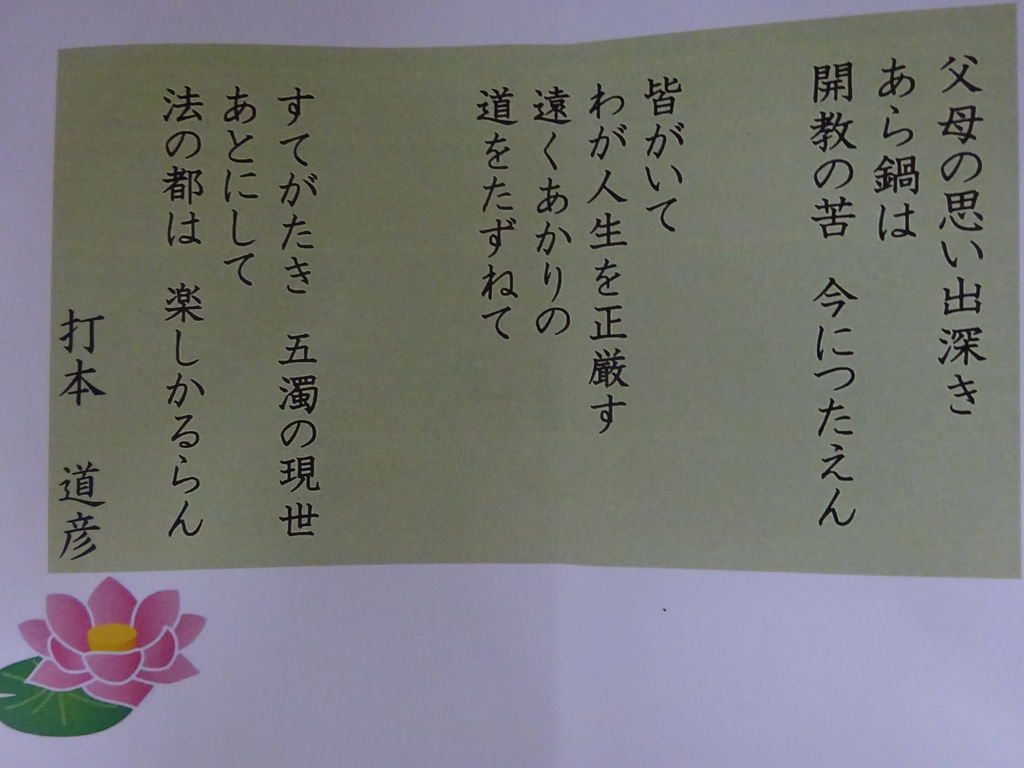 父母の思い出深き
あら鍋は
開教の苦　今につたえん
皆がいて
わが人生を正厳す
遠くあかりの
道をたずねて
すてがたき　五濁の現世
あとにして
法の都は　楽しかるらん
打本　道彦